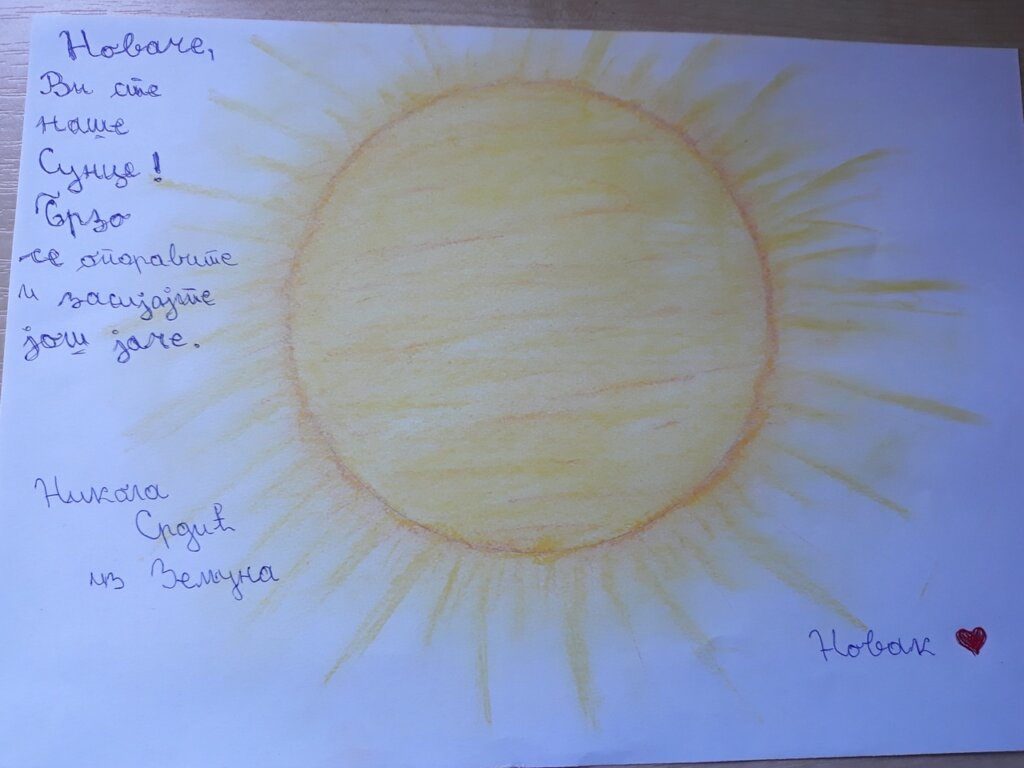 Новаче,
Ви сте
наше
Сунце!
Брзо
се опоравите
и засијајте
још јаче.
Никола
Срдић
из Земуна
Новак